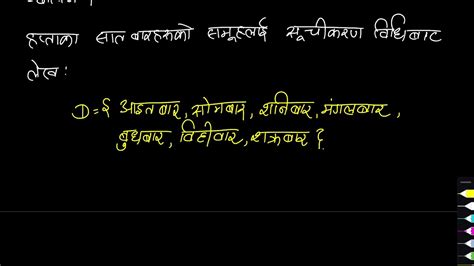 हप्ताका सात बारहरुको समूहलाई सूचीकरण विधिबाट
लेख :
D = { आइतबार, सोमबार, शनिबार, मंगलबार,
बुधबार, विहीवार, शुक्रबार }